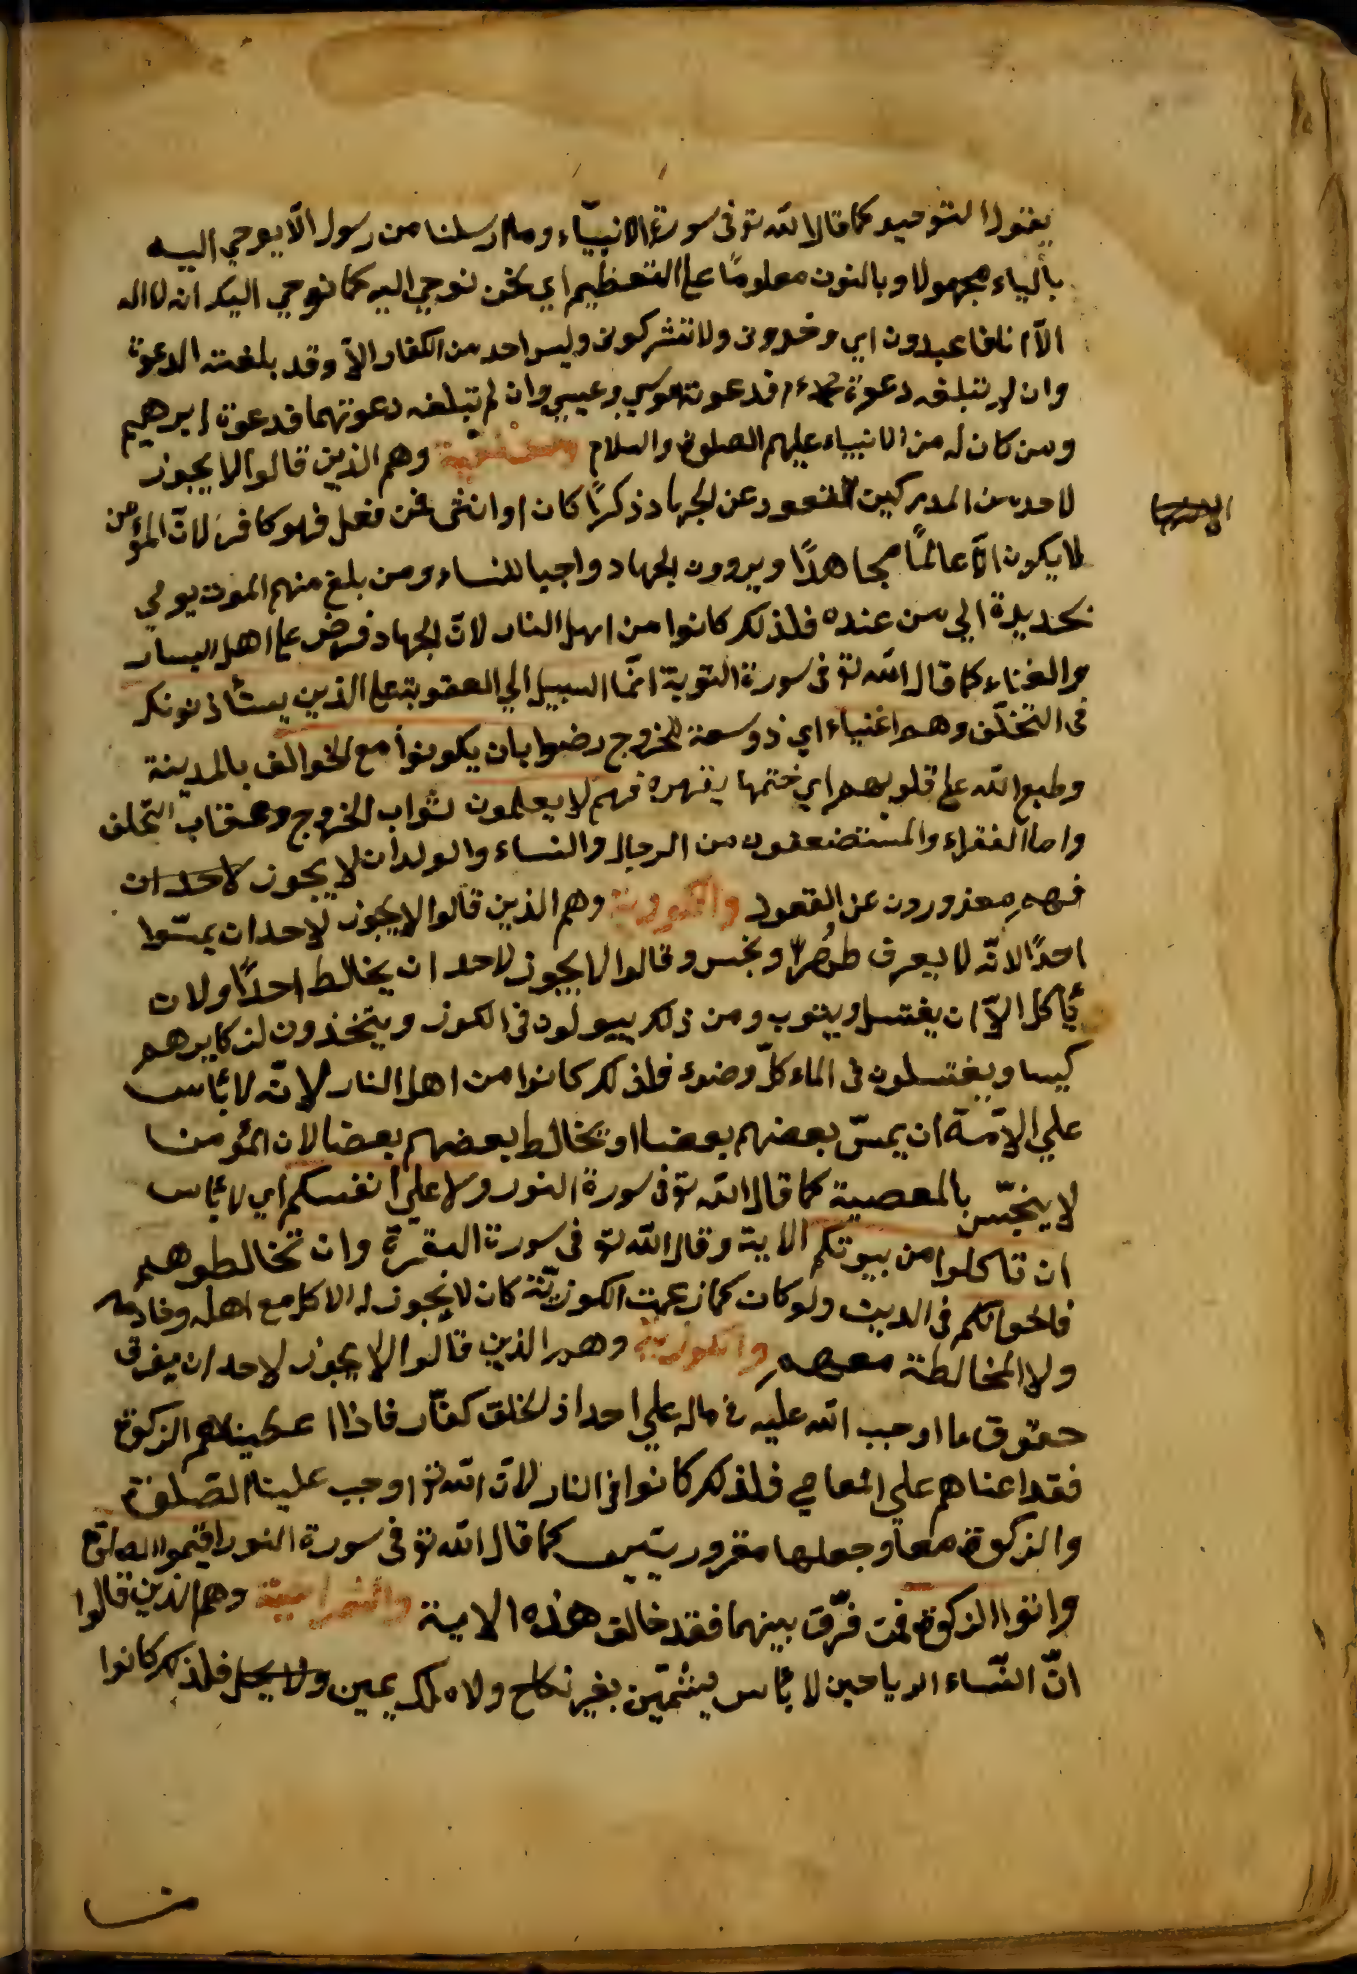 يقول التوحيد كما قال الله تع فى سورة الانبيآء وما ارسلنا من رسول الّا يوحي اليه
بالياء مجهولا وبالنون معلومًا على التعظيم اي نحن نوحي اليه كما نوحي اليك انه لا اله
الّا انا فاعبدون اي وحدون ولا تشركون وليس احد من الكفار الّا وقد بلغته الدعوة
وان لم تبلغه دعوة محمد ءم فدعوة موسي وعيسي وان لم تبلغه دعوتهما فدعوة ابرهيم
ومن كان له من الانبياء عليهم الصلوة والسلام وهم الذين قالوا لا يجوز
لاحد من المدركين القعود عن الجهاد ذكرًا كان او انثى فمن فعل فهو كافر لانّ المؤمن
لا يكون الّا عالمًا مجاهدًا ويرون الجهاد واجبا للنساء ومن بلغ منهم الموت يومي
بحديدة الي من عنده فلذلك كانوا من اهل النار لانّ الجهاد فرض على اهل اليسار
والغناء كما قال الله تع فى سورة التوبة انّما السبيل الي العقوبة على الذين يستأذنونك
فى التخلّف وهم اغنياء اي ذو سعة للخروج رضوا بان يكونوا مع الخوالف بالمدينة
وطبع الله على قلوبهم اي ختمها بقهره فهم لا يعلمون ثواب الخروج وعقاب التخلف
واما الفقراء والمستضعفون من الرجال والنساء والولدان لا يجوز لاحد ان
فهم معذورون عن القعود والكوزية وهم الذين قالوا لا يجوز لاحد ان يمسّوا
احدًا لانّه لا يعرف طهر ونجس وقالوا لا يجوز لاحد ان يخالط احدًا ولان
يأكل الّا ان يغتسل ويتوب ومن ذلك يبولون فى الكوز ويتخذون لذكايرهم
كيسا ويغتسلون فى الماء كلّ وضوء فلذلك كانوا من اهل النار لانّه لا بأس
علي الامّة ان يمسّ بعضهم بعضا او يخالط بعضهم بعضا لان المؤمن
لا ينجّس بالمعصية كما قال الله تع فى سورة النور ولا علي انفسكم اي لا بأس
ان تاكلوا من بيوتكم الاية وقال الله تع فى سورة البقرة وان تخالطوهم
فاخوانكم فى الدين ولو كان كما زعمت الكوزيّة كان لا يجوز له الاكل مع اهله وخادمه
ولا المخالطة معهم والكنوزية وهم الذين قالوا لا يجوز لاحد ان يفرق
حقوق ما اوجب الله عليه فى ماله علي احد اذ الخلق كفّار فاذا اعطيناهم الزكوة
فقد اعناهم علي المعاصي فلذلك كانوا فى النار لانّ الله تع اوجب علينا الصلوة
والزكوة معًا وجعلها مقرورتين كما قال الله تع فى سورة النور اقيموا الصلوة
واتوا الزكوة فمن فرّق بينهما فقد خالف هذه الاية والشمراخية وهم الذين قالوا
انّ النّساء الرياحين لا بأس بشمّهنّ بغير نكاح ولا ملك يمين ولا يحل فلذلك كانوا